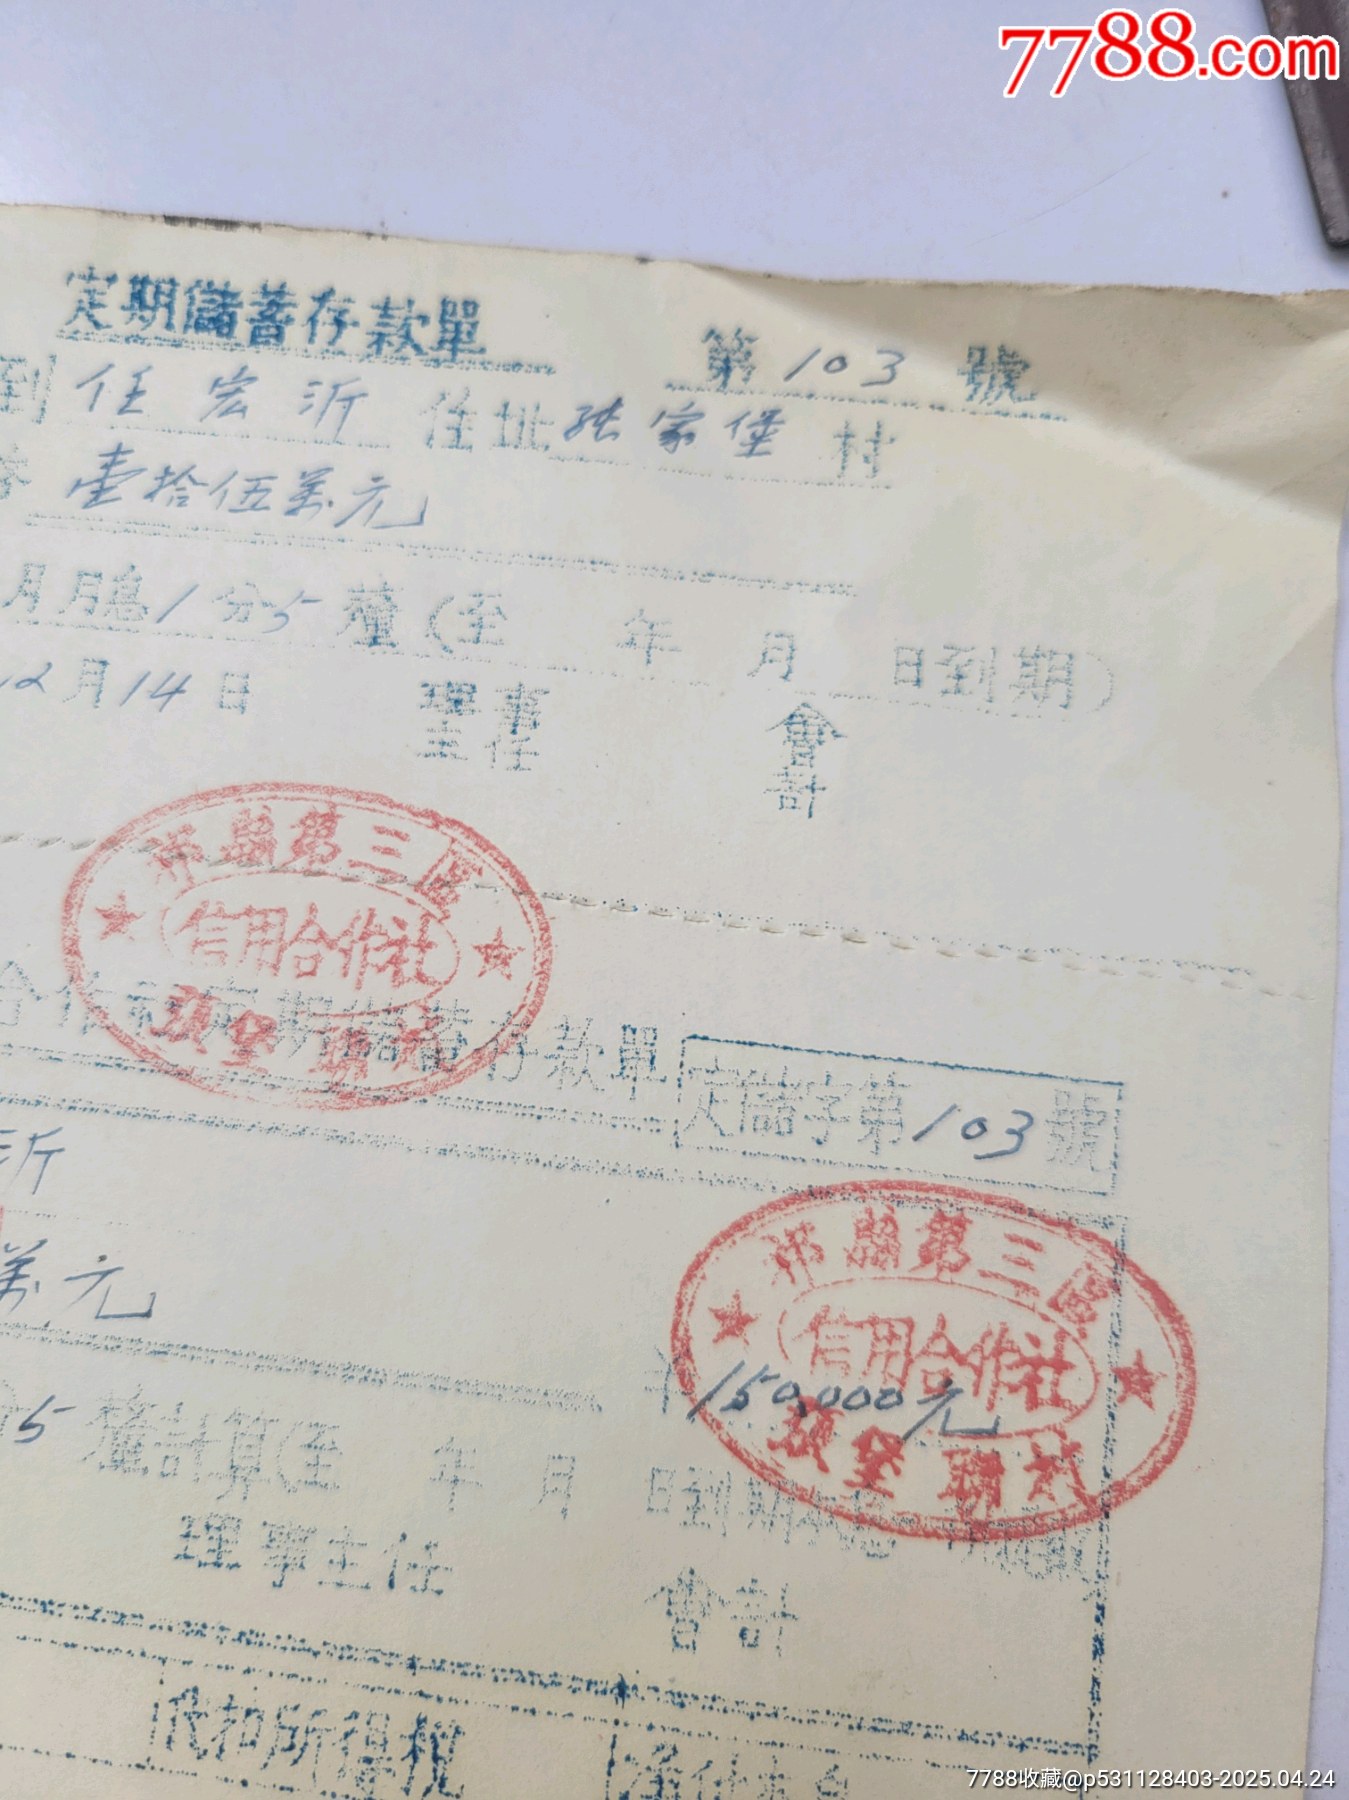 7788.com
定期儲蓄存款單 第103號
到任宏沂 住址张家堡村
壹拾伍萬元
月月息1分5釐(至 年 月 日到期)
12月14日 理事主任 會計
祁縣第三區
信用合作社
合作社定期儲蓄存款單 定儲字第103號
沂
祁縣第三區
萬元
信用合作社
150,000元
5釐計算(至 年 月 日到期
理事主任 會計
代扣所得稅
7788收藏@p531128403-2025.04.24